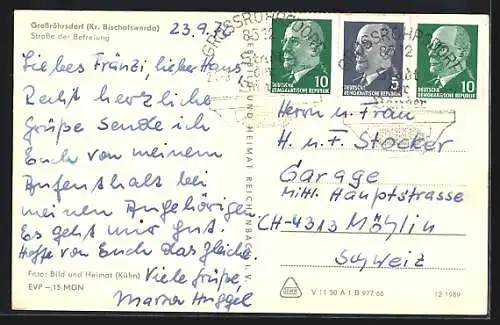 Großröhrsdorf (Kr. Bischofswerda)
Straße der Befreiung
23.9.
Liebes Fränzi, lieber Hans
Recht herzliche
Grüße sende ich
Euch von meinem
Aufenthalt bei
meinen Angehörigen
Es geht mir gut.
Hoffe von Euch das Gleiche.
Viele Grüße,
Foto: Bild und Heimat (Kühn)
EVP -,15 MDN
UND HEIMAT REICHENBACH I. V.
GROSSRÖHRSDORF
8512
10
DEUTSCHE DEMOKRATISCHE REPUBLIK
5
DEUTSCHE DEMOKRATISCHE REPUBLIK
10
DEUTSCHE DEMOKRATISCHE REPUBLIK
Herrn u. Frau
H. u. F. Stocker
Garage
Mittl. Hauptstrasse
CH-4313 Möhlin
Schweiz
V 11 50 A 1 B 977 66
12 1989